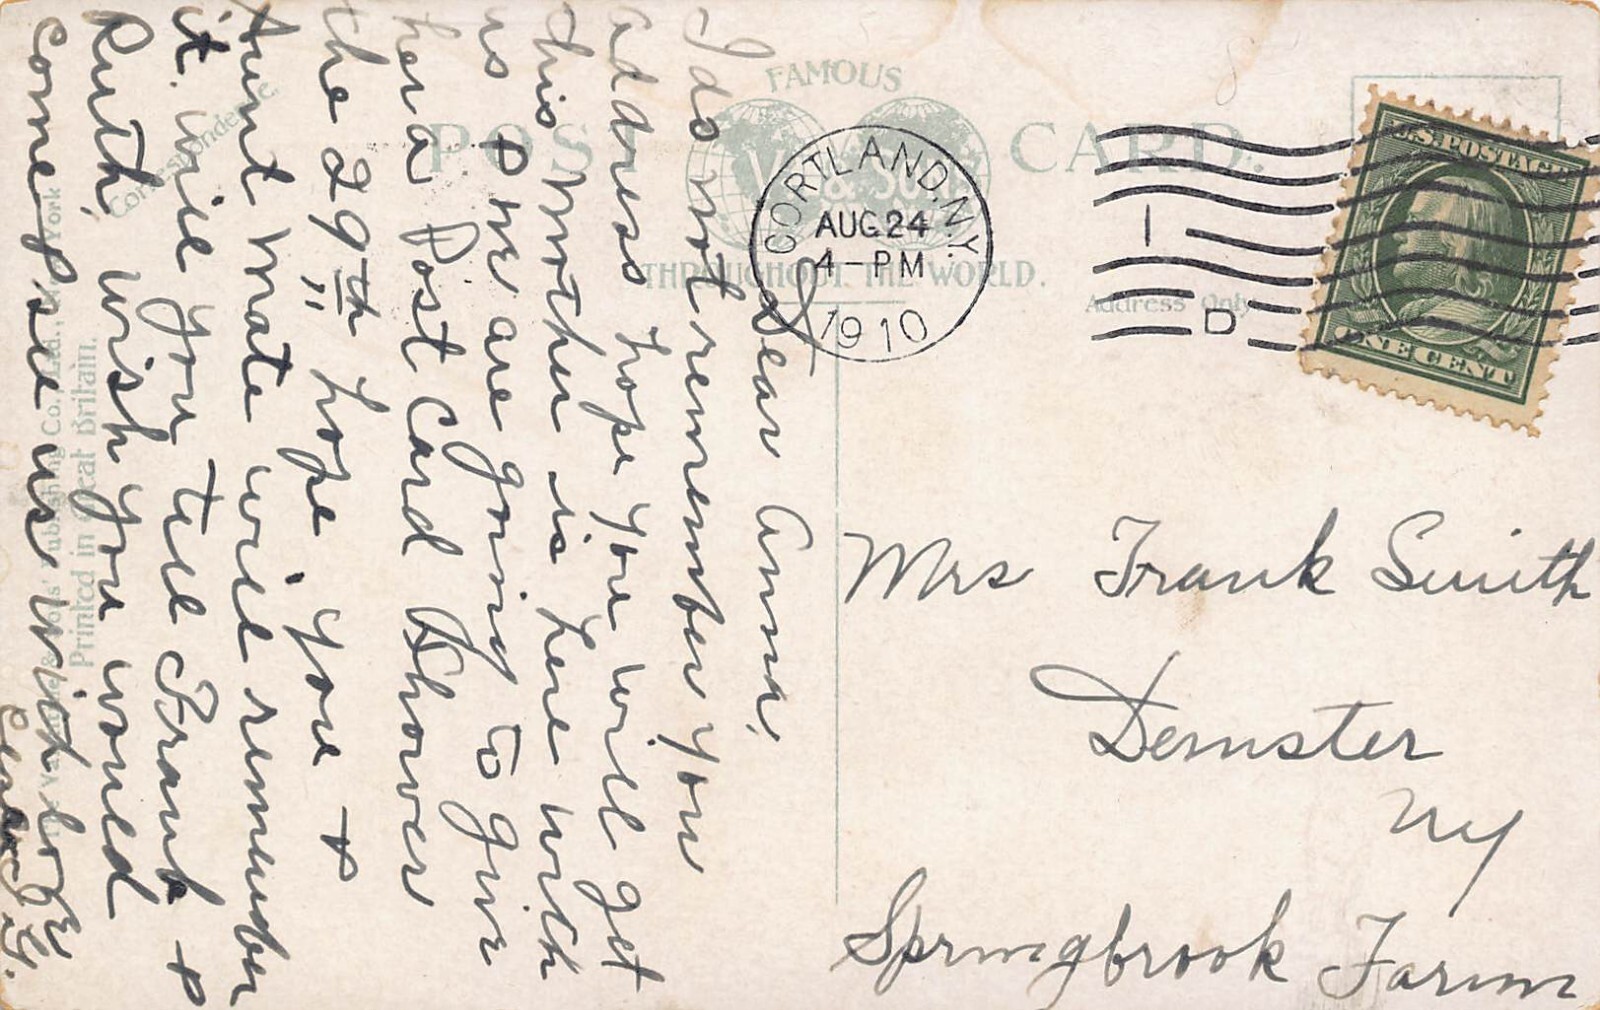 FAMOUS
POST CARD.
THROUGHOUT THE WORLD.
Correspondence
Address Only
Printed in Great Britain.
CORTLAND, N.Y.
AUG 24
4-PM
1910
1
D
U.S. POSTAGE
ONE CENT
Dear Anna,
I do not remember you
address hope you will get
this Mother is here with
us & we are going to give
her a Post Card Shower
the 29th hope you &
Aunt Mate will remember
it. will you tell Frank &
Ruth, wish you would
come & see us with love
G.
Mrs Frank Smith
Demster
NY
Springbrook Farm